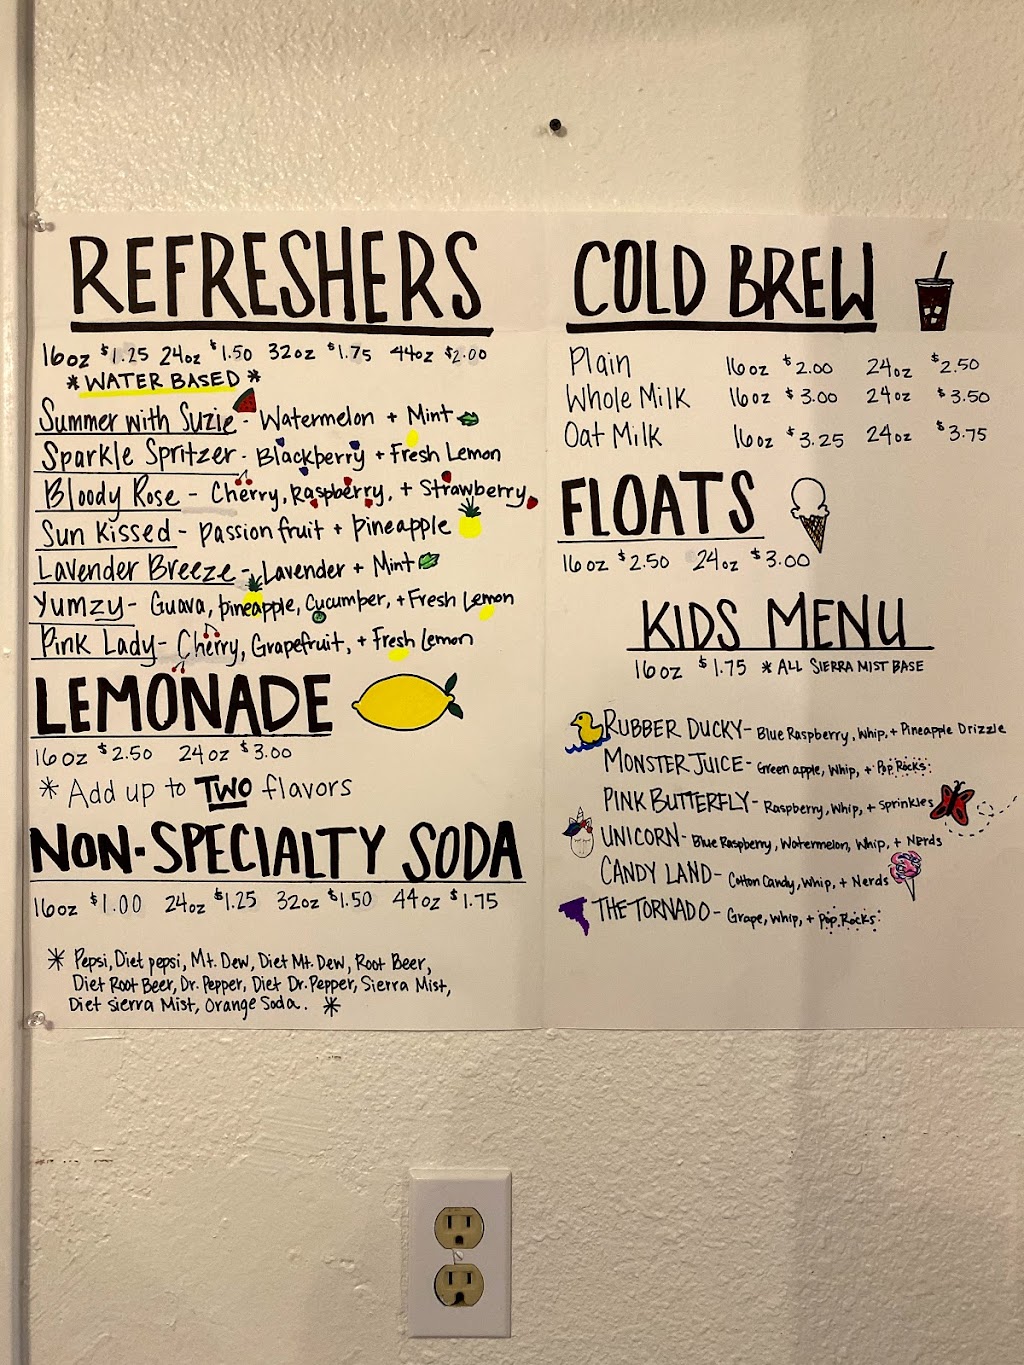 REFRESHERS
16oz $1.25 24oz $1.50 32oz $1.75 44oz $2.00
* WATER BASED *
Summer with Suzie - Watermelon + Mint
Sparkle Spritzer - Blackberry + Fresh Lemon
Bloody Rose - Cherry, Raspberry, + Strawberry
Sun Kissed - Passion fruit + Pineapple
Lavender Breeze - Lavender + Mint
Yumzy - Guava, pineapple, Cucumber, + Fresh Lemon
Pink Lady - Cherry, Grapefruit, + Fresh Lemon
LEMONADE
16oz $2.50 24oz $3.00
* Add up to TWO flavors
NON-SPECIALTY SODA
16oz $1.00 24oz $1.25 32oz $1.50 44oz $1.75
* Pepsi, Diet pepsi, Mt. Dew, Diet Mt. Dew, Root Beer,
Diet Root Beer, Dr. Pepper, Diet Dr. Pepper, Sierra Mist,
Diet sierra Mist, Orange Soda. *
COLD BREW
Plain 16oz $2.00 24oz $2.50
Whole Milk 16oz $3.00 24oz $3.50
Oat Milk 16oz $3.25 24oz $3.75
FLOATS
16oz $2.50 24oz $3.00
KIDS MENU
16oz $1.75 * ALL SIERRA MIST BASE
RUBBER DUCKY - Blue Raspberry, Whip, + Pineapple Drizzle
MONSTER JUICE - Green apple, Whip, + Pop Rocks
PINK BUTTERFLY - Raspberry, Whip, + Sprinkles
UNICORN - Blue Raspberry, Watermelon, Whip, + Nerds
CANDY LAND - Cotton Candy, Whip, + Nerds
THE TORNADO - Grape, Whip, + Pop Rocks